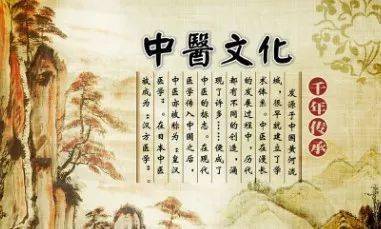 中醫文化
千年传承
发源于中国黄河流
域，很早就建立了学
术体系。中医在漫长
的发展过程中，历代
都有不同的创造，涌
现了许多……便成了
中医的标志。在现代
医学入中国之后，
中医亦被称为“皇汉
医学”。在日本中医
被成为“汉方医学”。